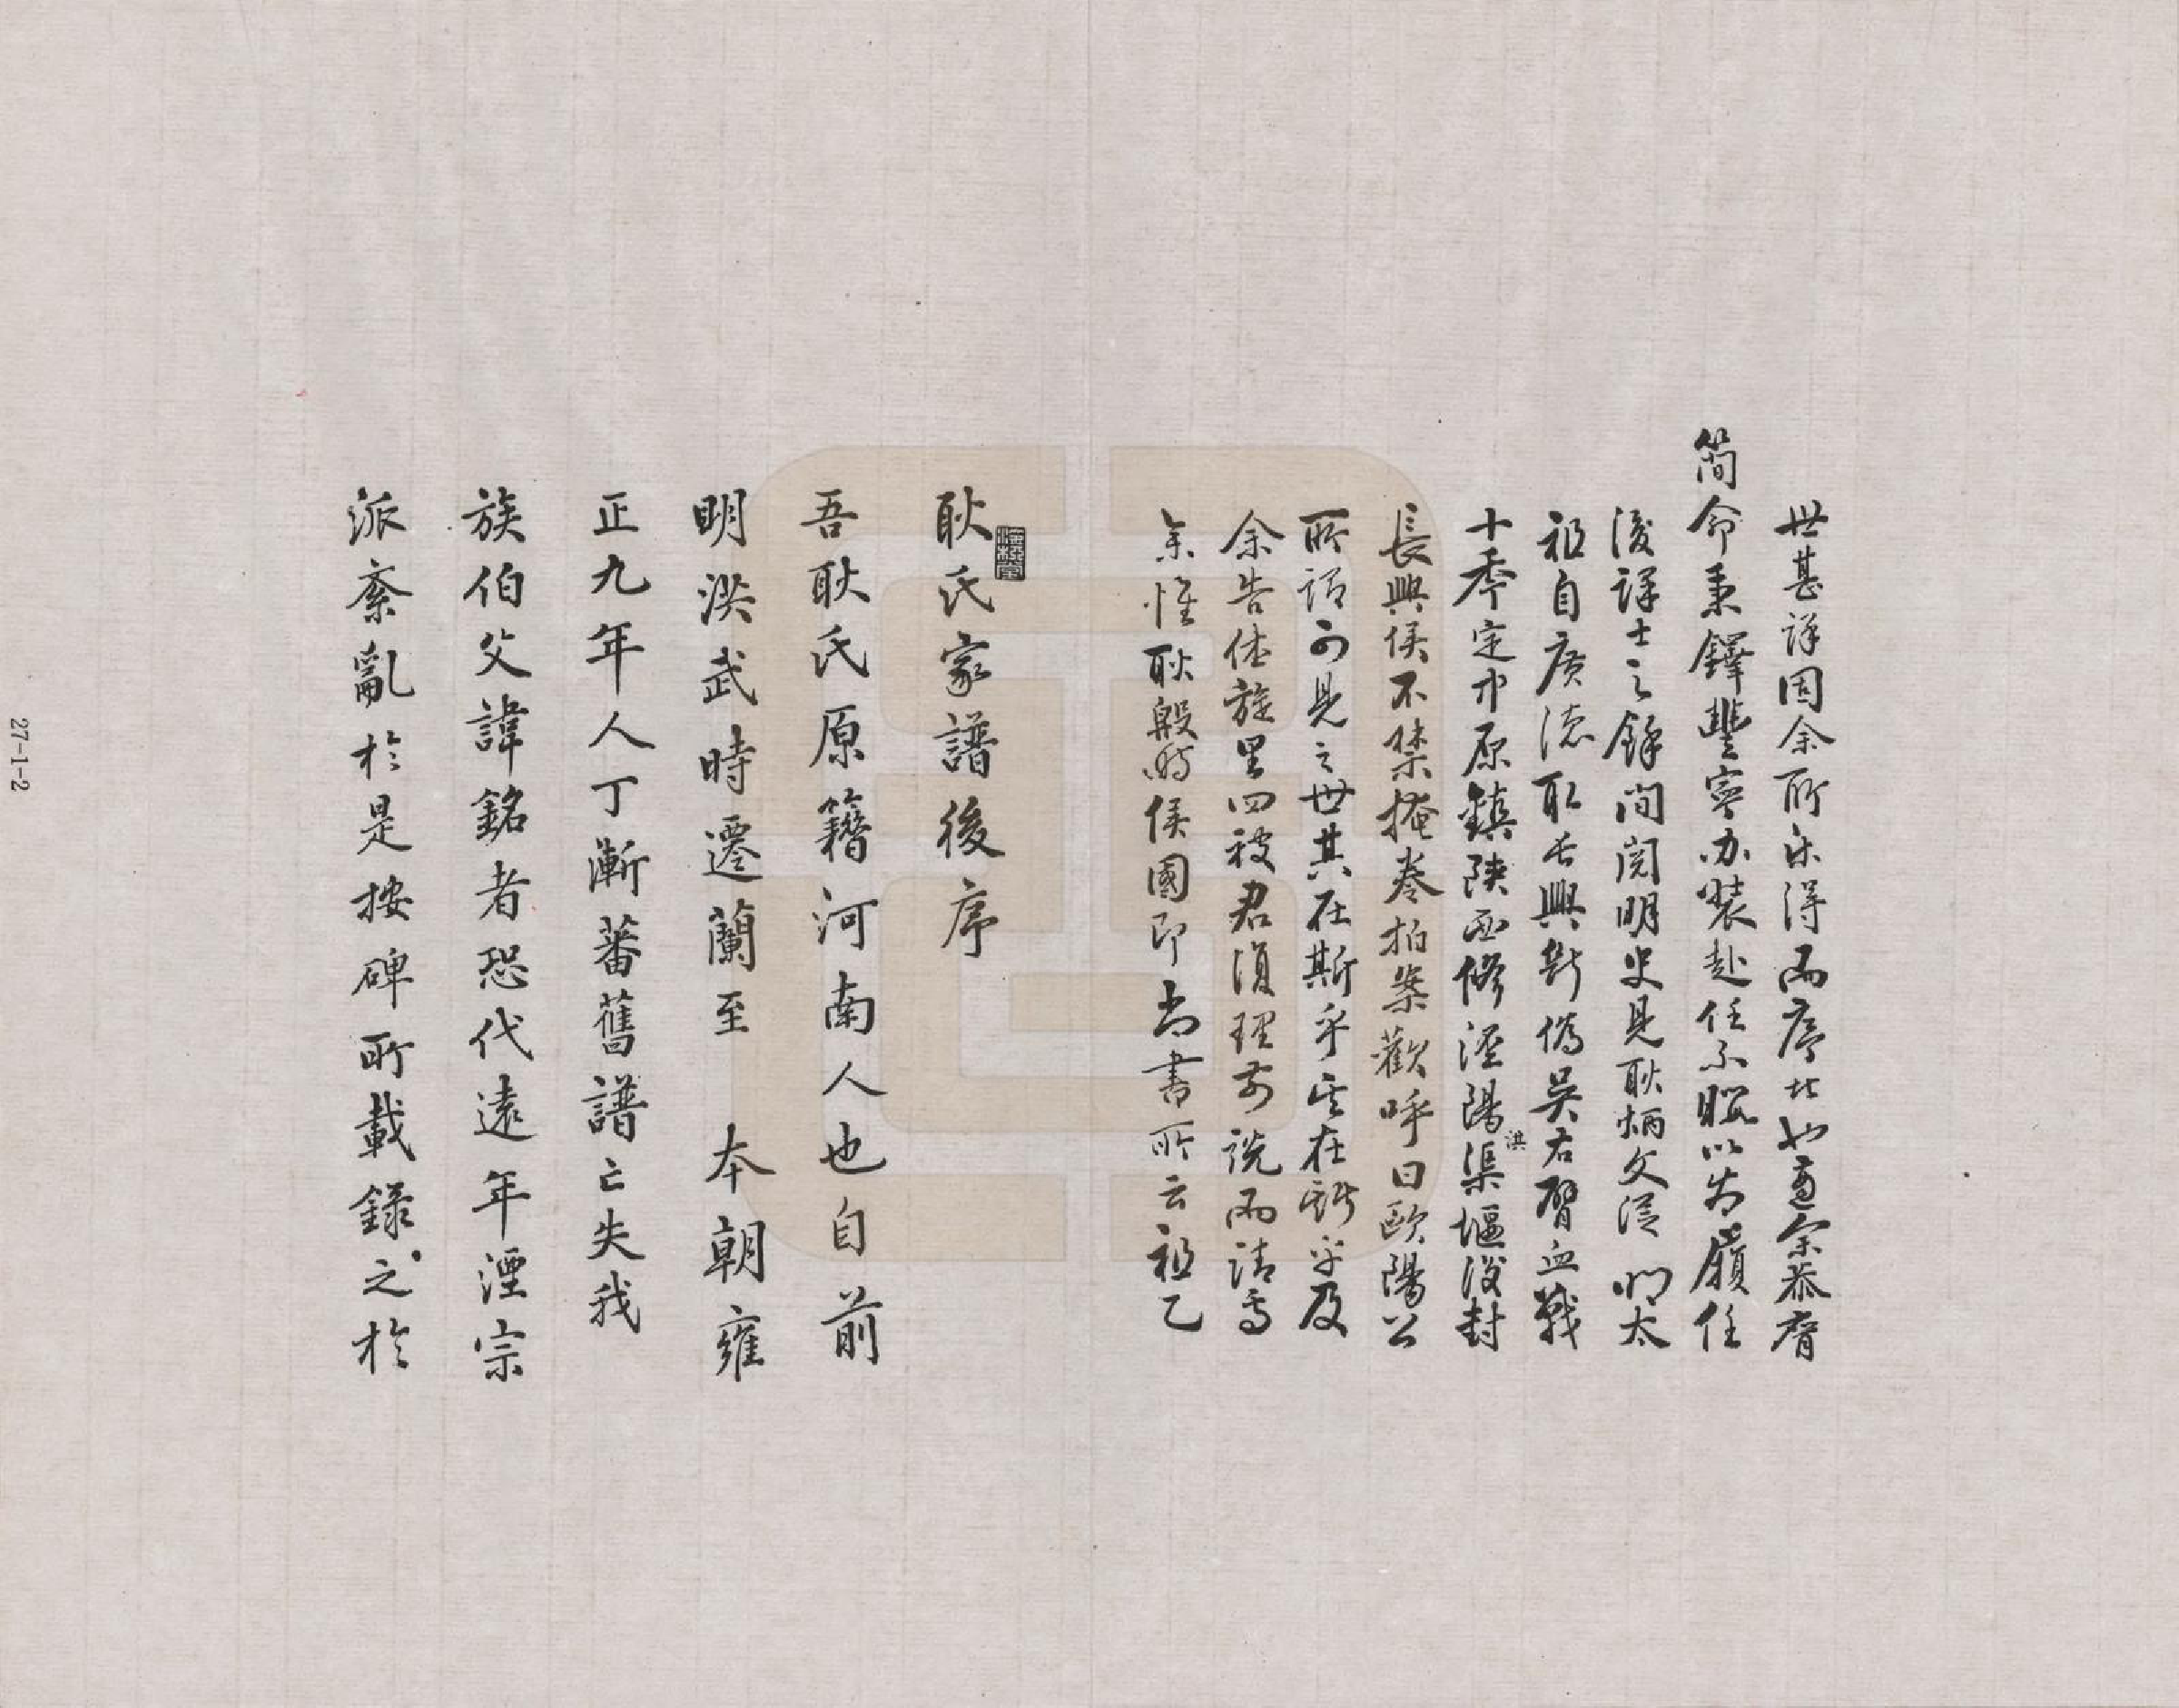 世甚詳因余所求得兩序此也適余恭膺
簡命秉鐸豐寧办裝赴任不暇以為履任
後課士之餘间閱明史見耿炳文從明太
祖自廣德取長興断偽吳右臂血戰
十年定中原鎮陝西修涇陽洪渠堰後封
長興侯不禁掩卷拍案歡呼曰歐陽公
所謂可見之世其在斯乎其在斯乎及
余告休旋里四被君復理前說而請焉
余惟耿殷時侯國即尚書所云祖乙
耿氏家譜後序
吾耿氏原籍河南人也自前
明洪武時遷蘭至 本朝雍
正九年人丁漸蕃舊譜亡失我
族伯父諱銘者恐代遠年湮宗
派紊亂於是按碑所載錄之於
27-1-2